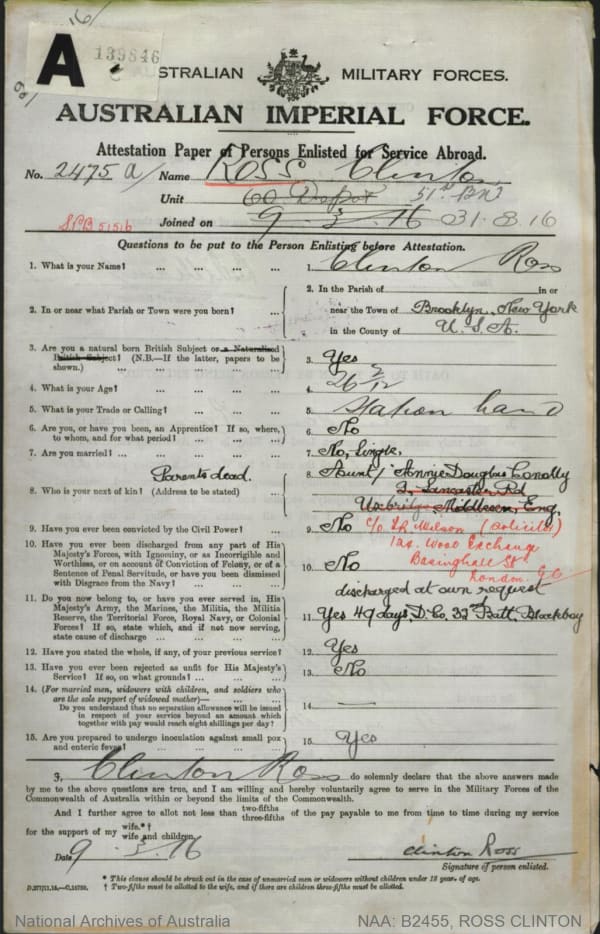 16/
A 139846
AUSTRALIAN MILITARY FORCES.
AUSTRALIAN IMPERIAL FORCE.
Attestation Paper of Persons Enlisted for Service Abroad.
No. 2475 a/ Name ROSS Clinton
Unit 60 Depot 51st BN
Joined on 9.3.16 31.8.16
Questions to be put to the Person Enlisting before Attestation.
1. What is your Name? ... ... ... ... 1. Clinton Ross
2. In or near what Parish or Town were you born? ... ... 2. In the Parish of in or
near the Town of Brooklyn, New York
in the County of U.S.A.
3. Are you a natural born British Subject or a Naturalised
British Subject? (N.B.—If the latter, papers to be
shown.) ... ... ... ... 3. Yes
4. What is your Age? ... ... ... ... 4. 26 2/12
5. What is your Trade or Calling? ... ... ... 5. Station hand
6. Are you, or have you been, an Apprentice? If so, where,
to whom, and for what period? ... ... ... 6. No
7. Are you married? ... ... ... ... ... 7. No, Single.
Parents dead.
8. Who is your next of kin? (Address to be stated) ... 8. Aunt/ Annye Douglas Conolly
Lancaster Rd
Uxbridge Middlesex, Eng.
9. Have you ever been convicted by the Civil Power? ... 9. No c/o Wilson (Solicitor)
Wood Exchange
Basinghall St
London. E.C
10. Have you ever been discharged from any part of His
Majesty's Forces, with Ignominy, or as Incorrigible and
Worthless, or on account of Conviction of Felony, or of a
Sentence of Penal Servitude, or have you been dismissed
with Disgrace from the Navy? ... ... ... 10. No
discharged at own request
11. Do you now belong to, or have you ever served in, His
Majesty's Army, the Marines, the Militia, the Militia
Reserve, the Territorial Force, Royal Navy, or Colonial
Forces? If so, state which, and if not now serving,
state cause of discharge ... ... ... 11. Yes 49 days, D. Co. 32nd Batt. Blackboy
12. Have you stated the whole, if any, of your previous service? 12. Yes
13. Have you ever been rejected as unfit for His Majesty's
Service? If so, on what grounds? ... ... ... 13. No
14. (For married men, widowers with children, and soldiers who
are the sole support of widowed mother)—
Do you understand that no separation allowance will be issued
in respect of your service beyond an amount which
together with pay would reach eight shillings per day? 14. —
15. Are you prepared to undergo inoculation against small pox
and enteric fever? ... ... ... ... 15. Yes
I, Clinton Ross do solemnly declare that the above answers made
by me to the above questions are true, and I am willing and hereby voluntarily agree to serve in the Military Forces of the
Commonwealth of Australia within or beyond the limits of the Commonwealth.
And I further agree to allot not less than two-fifths
three-fifths of the pay payable to me from time to time during my service
for the support of my wife.*†
wife and children.
Date 9.3.16 Clinton Ross
Signature of person enlisted.
* This clause should be struck out in the case of unmarried men or widowers without children under 18 year of age.
† Two-fifths must be allotted to the wife, and if there are children three-fifths must be allotted.
National Archives of Australia NAA: B2455, ROSS CLINTON